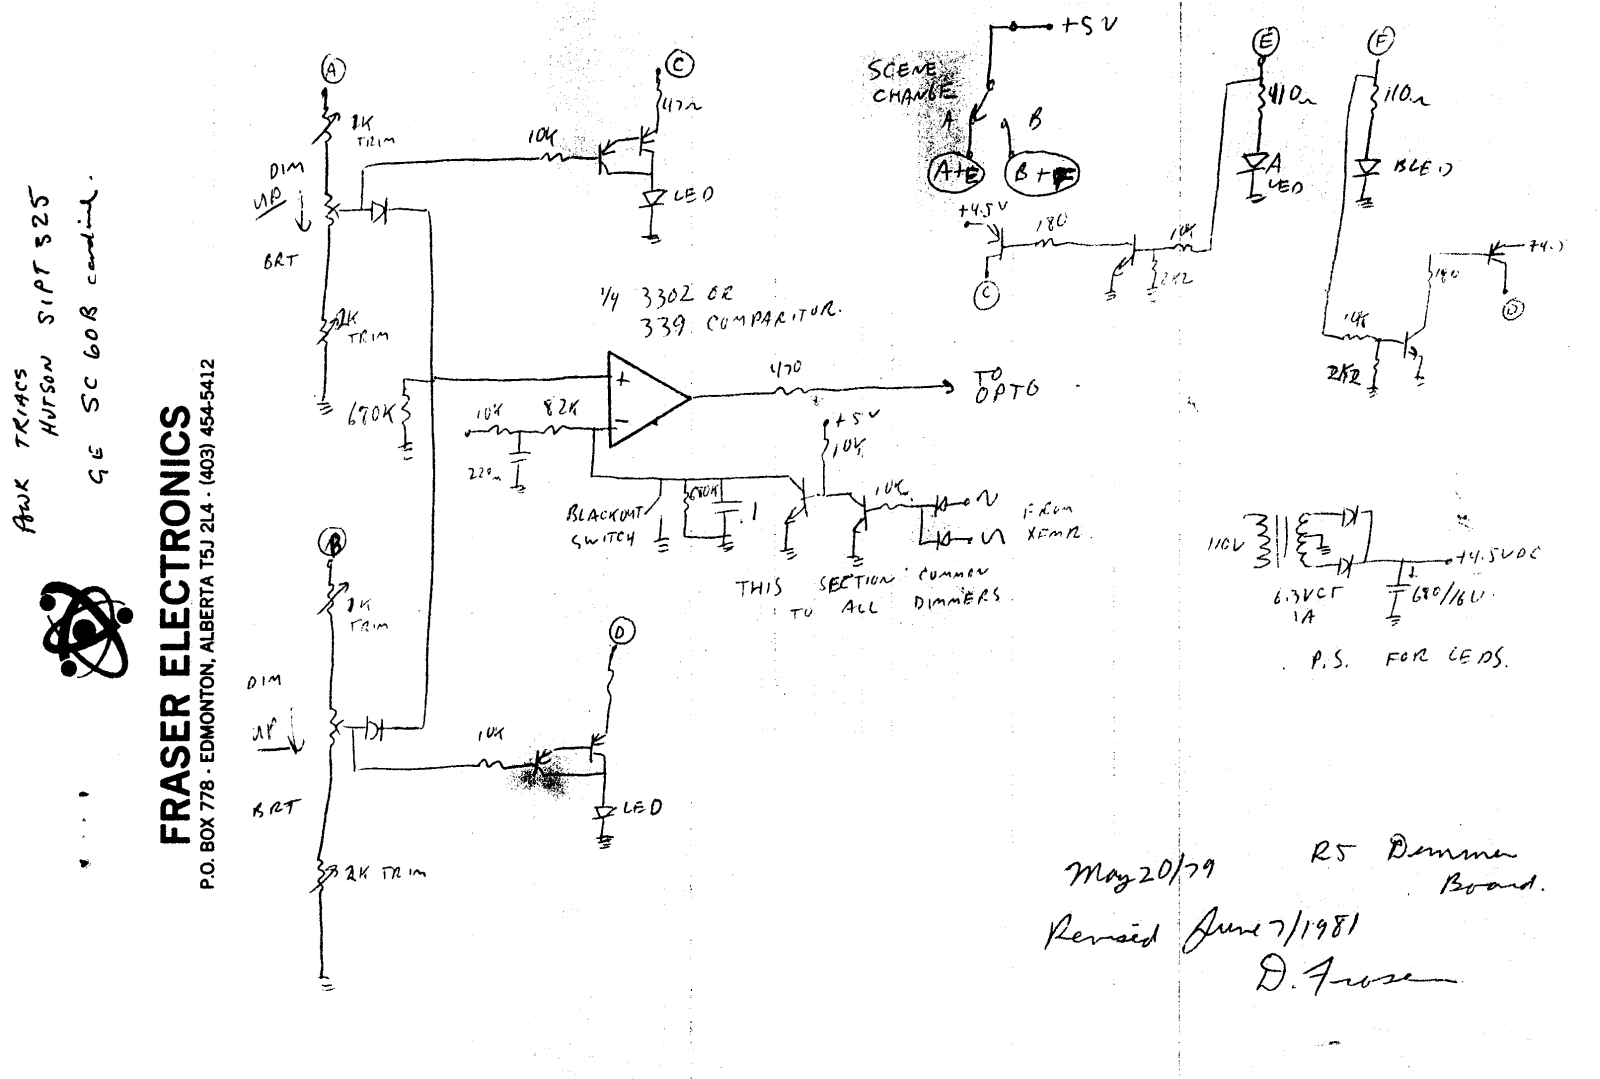 PWR TRIACS
HUTSON SIPT 525
GE SC 60B
FRASER ELECTRONICS
P.O. BOX 778 - EDMONTON, ALBERTA T5J 2L4 - (403) 454-5412
A
1K
TRIM
DIM
UP
BRT
2K
TRIM
10K
C
47Ω
LED
SCENE
CHANGE
+5V
A
B
A+E
B+F
+4.5V
180
10K
2K2
C
E
110Ω
A
LED
F
110Ω
B LED
180
D
10K
2K2
1/4 3302 OR
339 COMPARITOR.
+
−
680K
10K
82K
220n
470
TO
OPTO
+5V
10K
BLACKOUT
SWITCH
680K
.1
10K
FROM
XFMR.
THIS SECTION COMMON
TO ALL DIMMERS.
B
1K
TRIM
DIM
UP
BRT
2K TRIM
10K
D
LED
110V
6.3VCT
1A
+4.5VDC
+
680/16V
P.S. FOR LEDS.
May 20/79
R5 Dimmer
Board.
Revised June 7/1981
D. Fraser